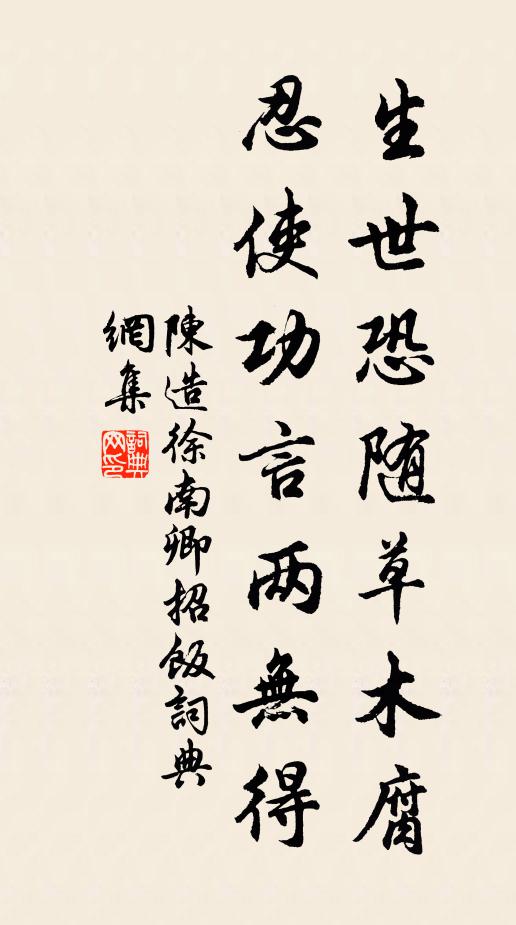 生世恐随草木腐
忍使功言兩無得
陳造徐南卿招飯詞典
網集
詞典網印